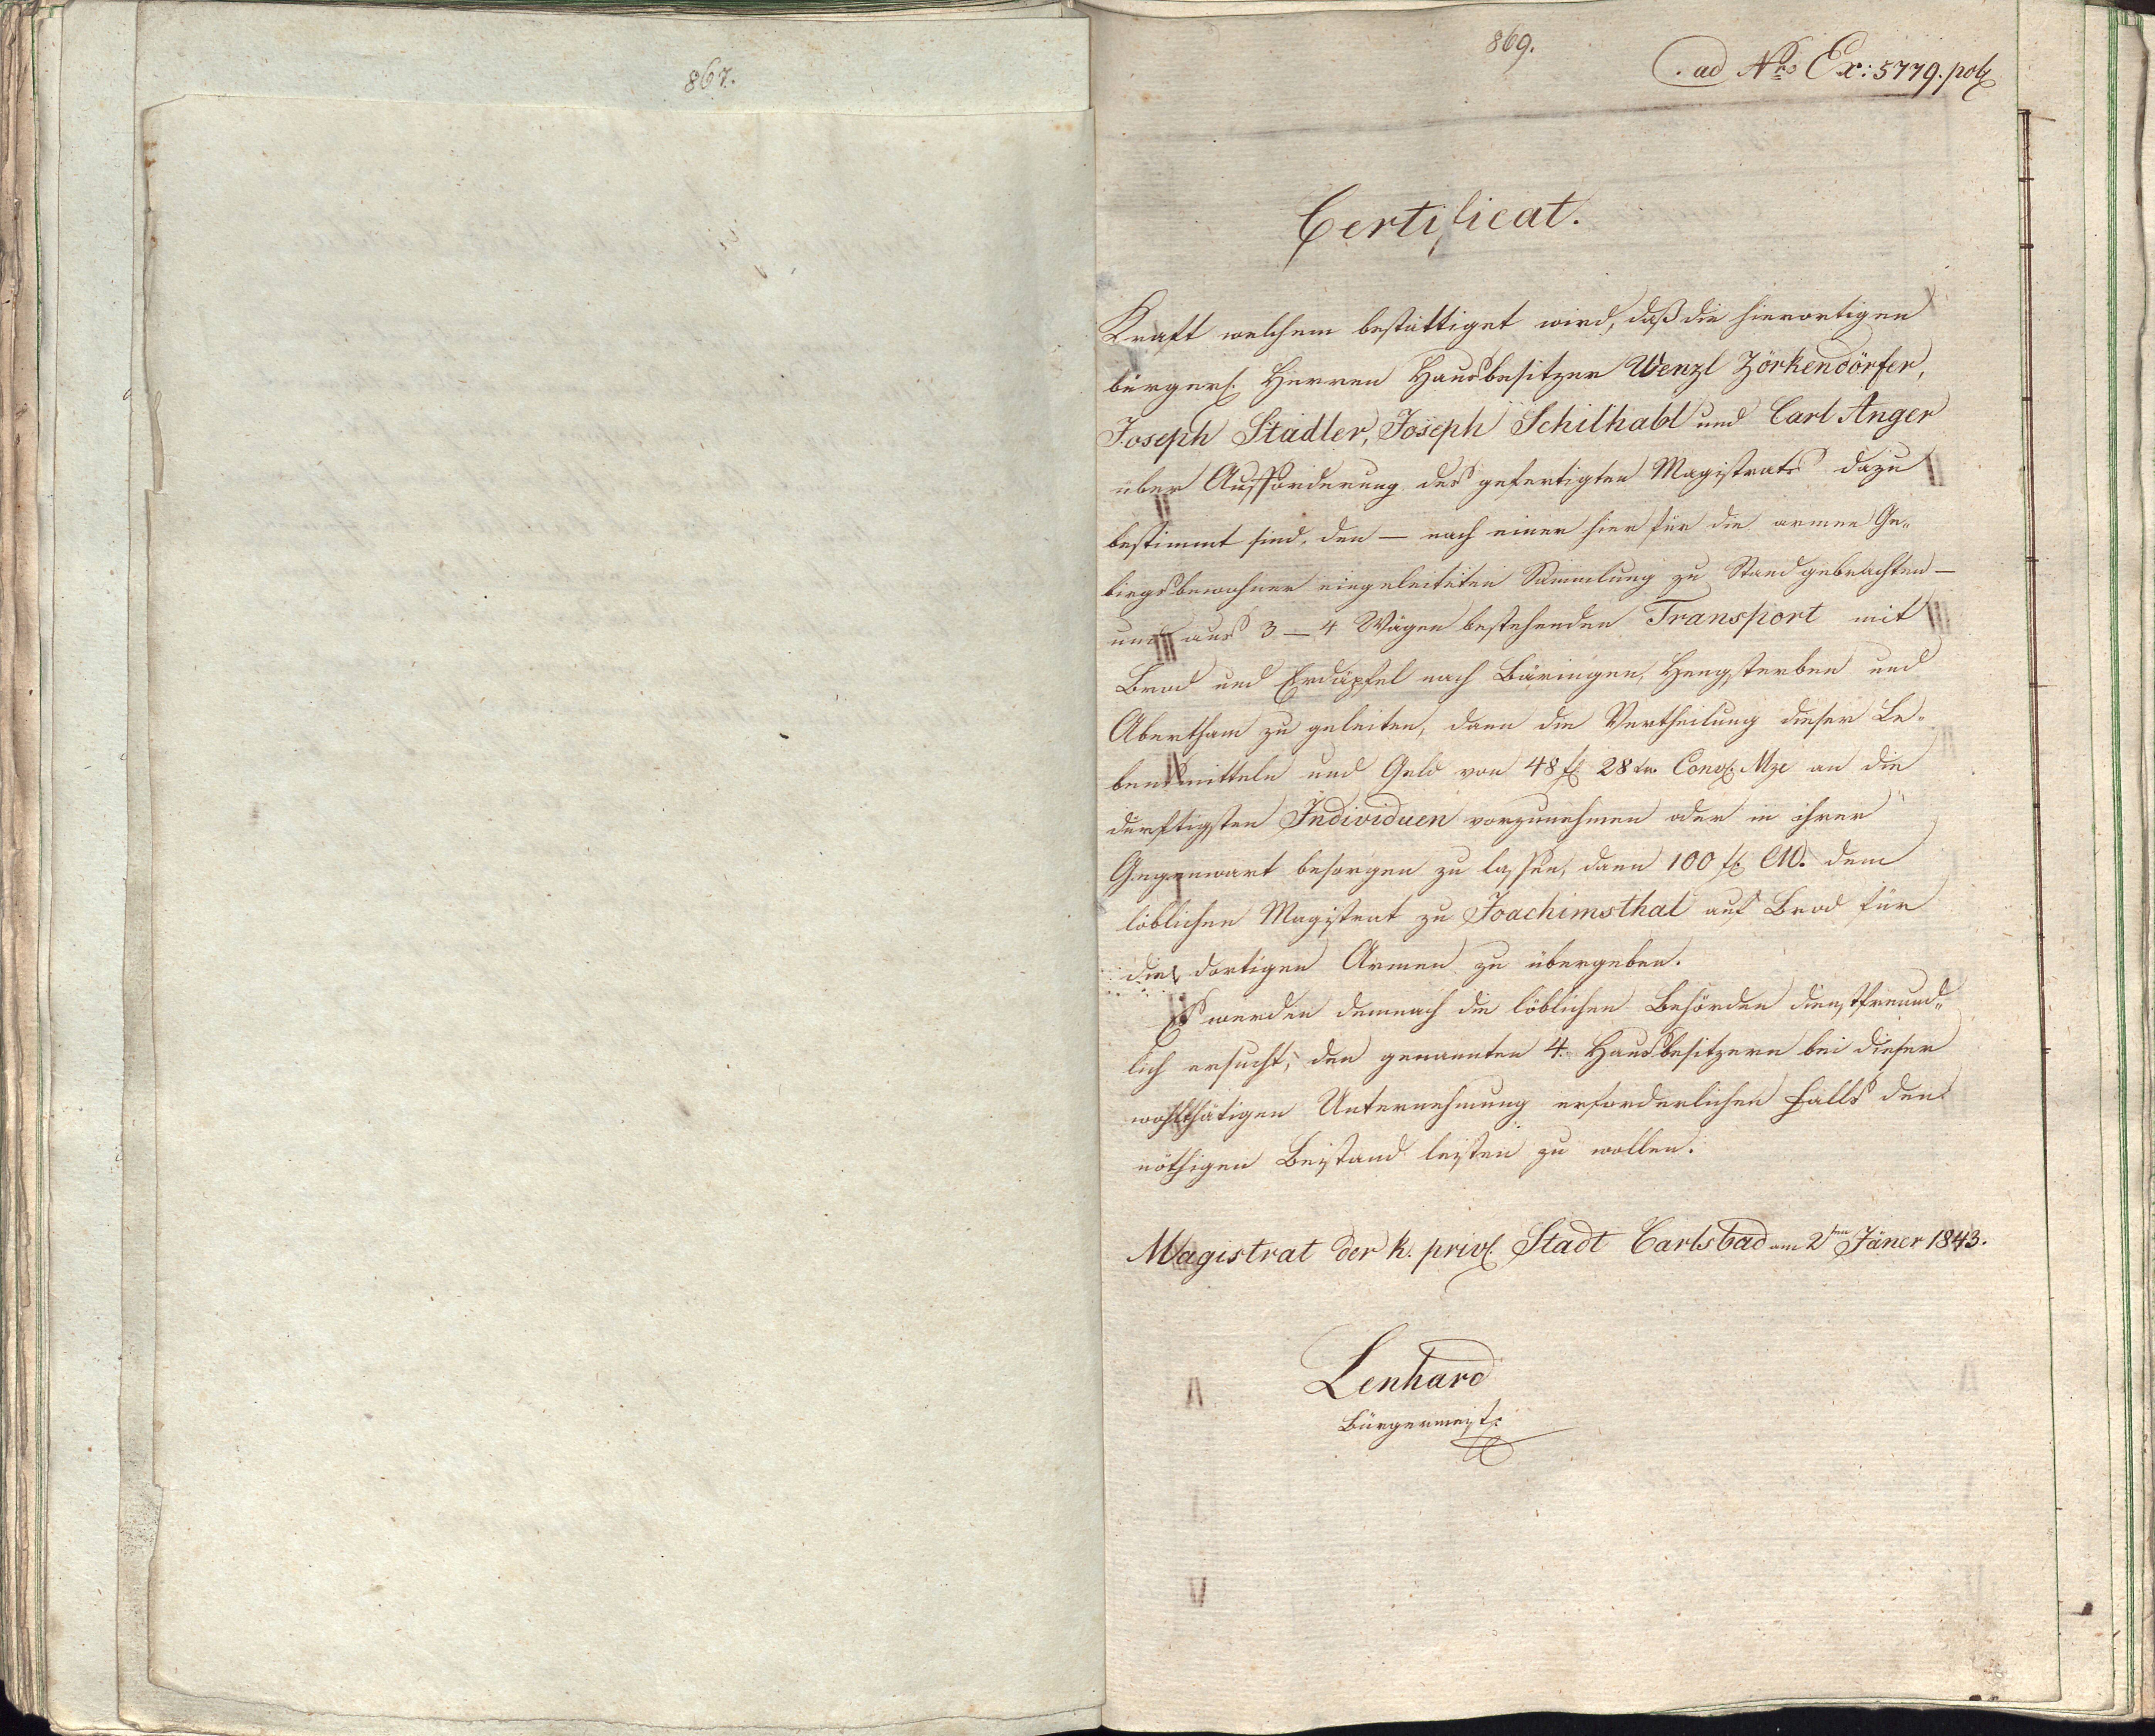 867.
869.
ad Nro Ex: 5779. pol
Certificat.
Kraft welchem bestättiget wird, daß die hierortigen
bürgerl. Herren Hausbesitzer Wenzl Zörkendörfer,
Joseph Stadler, Joseph Schilhabl und Carl Anger
über Aufforderung des gefertigten Magistrats dazu
bestimmt sind, den — nach einer hier für die armen Ge„
birgsbewohner eingeleiteten Sammlung zu Stand gebrachten —
und aus 3 — 4 Wägen bestehenden Transport mit
Brod und Erdäpfel nach Bäringen, Hengsterben und
Abertham zu geleiten, dann die Vertheilung dieser Le„
bensmitteln und Geld von 48 f 28 kr Conv. Mze an die
dürftigsten Individuen vorzunehmen oder in ihrer
Gegenwart besorgen zu lassen, dann 100 f CM. dem
löblichen Magistrat zu Joachimsthal auf Brod für
die dortigen Armen zu übergeben.
Es werden demnach die löblichen Behörden dienstfreund„
lich ersucht, den genannten 4. Hausbesitzern bei dieser
wohlthätigen Unternehmung erforderlichen Falls den
nöthigen Beistand leisten zu wollen.
Magistrat der k. privl. Stadt Carlsbad am 2ten Jäner 1843.
Lenhard
Bürgermeist.